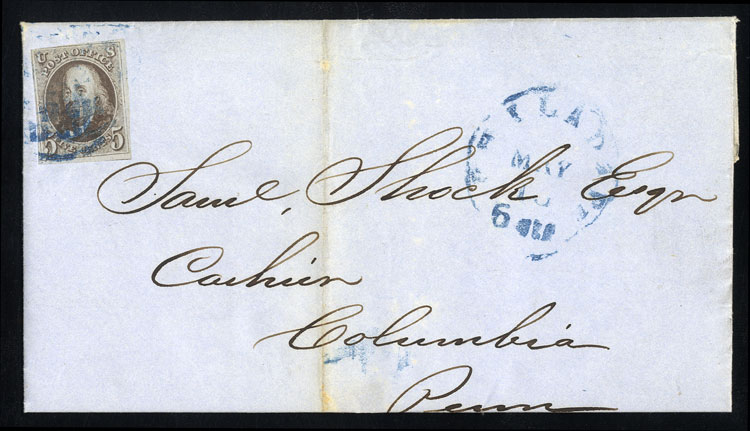 U S
POST OFFICE
5 5
MAY
5 cts
Saml. Shock Esqr
Cashier
Columbia
Penn